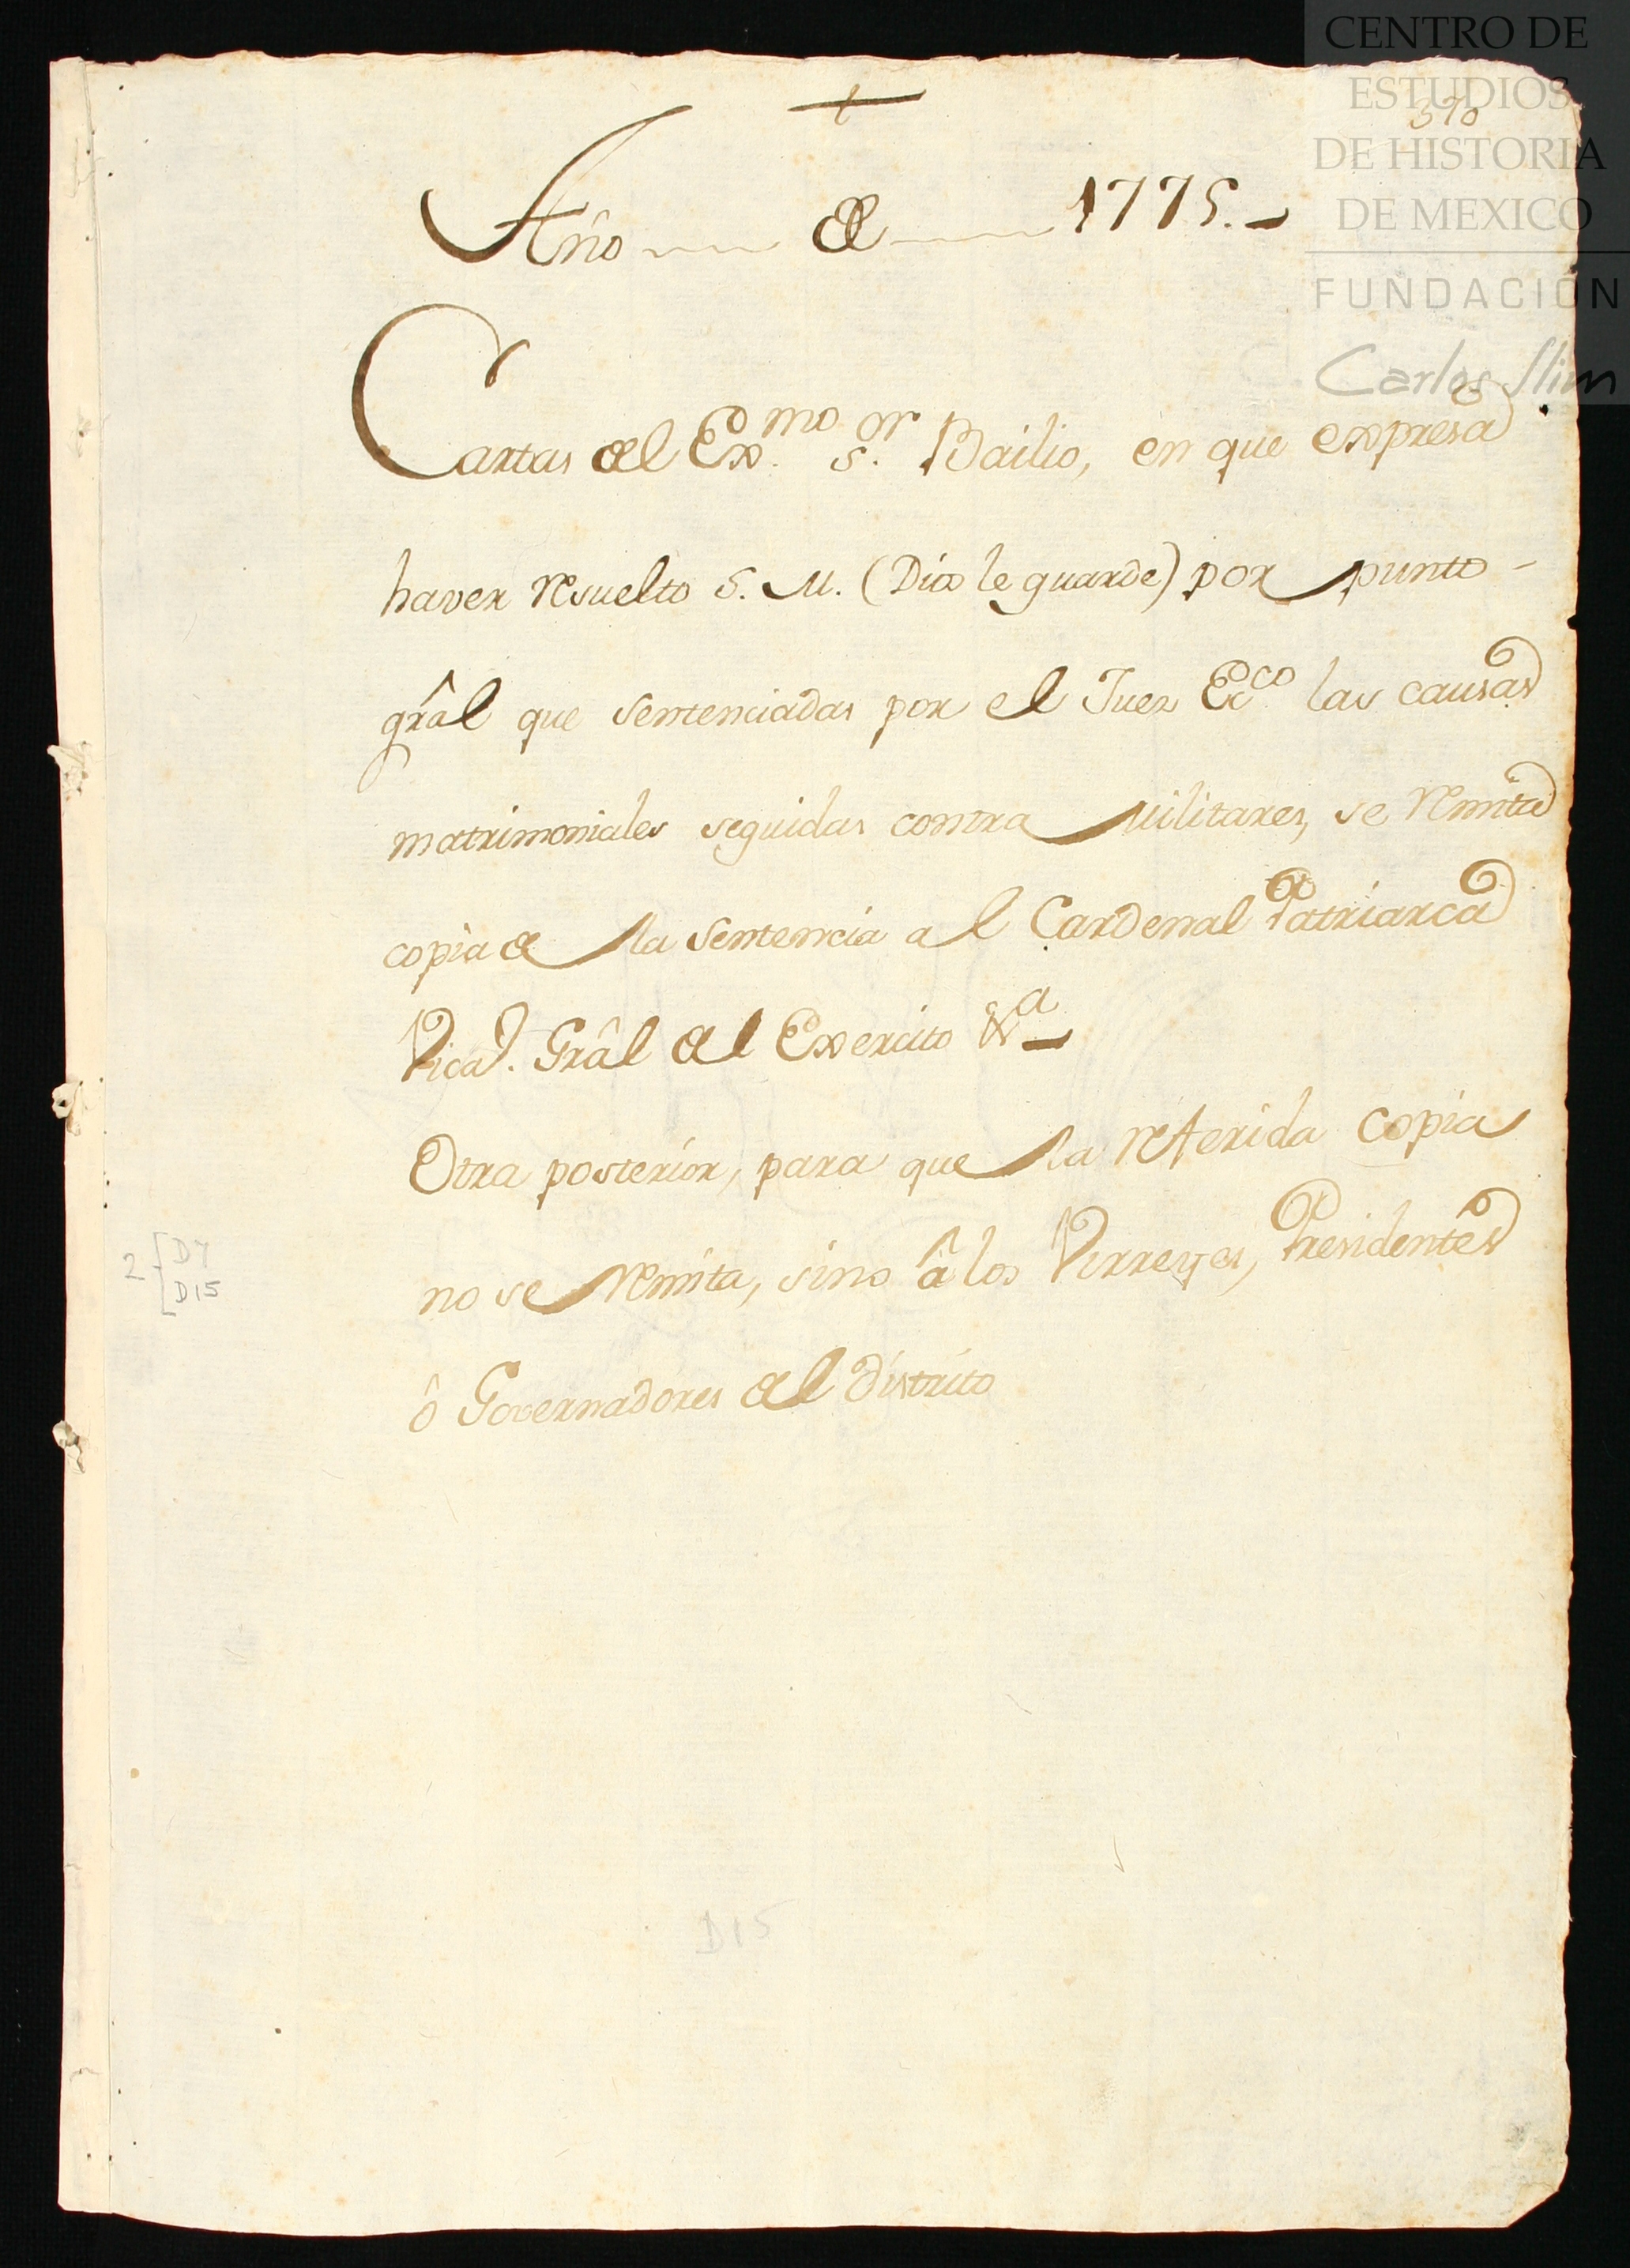 CENTRO DE
ESTUDIOS
DE HISTORIA
DE MEXICO
FUNDACIÓN
Carlos Slim
570
Año de 1775.
Cartas del Exmo. Sor. Bailio, en que expresa
haver resuelto S. M. (Dios le guarde) por punto
grâl que sentenciadas por el Juez Ecco. las causas
matrimoniales seguidas contra Militares, se remita
copia de la sentencia al Cardenal Patriarca
Vica.r Grâl del Exercito &a
Otra posterior, para que la referida copia
no se remita, sino â los Virreyes, Presidentes
ô Governadores del distrito
2 [D7
[D15
D15